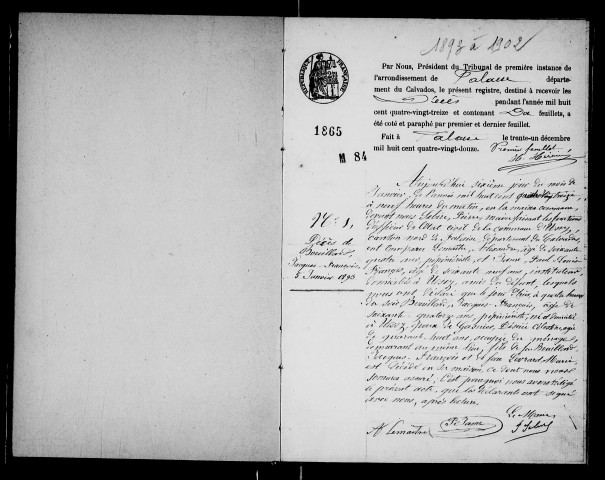 1893 à 1902
RÉPUBLIQUE FRANÇAISE
Par Nous, Président du Tribunal de première instance de
l'arrondissement de Falaise départe-
ment du Calvados, le présent registre, destiné à recevoir les
Décès pendant l'année mil huit
cent quatre-vingt-treize et contenant Dix feuillets, a
été coté et paraphé par premier et dernier feuillet.
Fait à Falaise le trente-un décembre
mil huit cent quatre-vingt-douze. Premier feuillet
1865
M 84
N° 1,
Décès de
Bouillard
Jacques-François,
5 Janvier 1893
Aujourd'hui sixième jour du mois de
Janvier de l'année mil huit cent quatre-vingt treize
à neuf heures du matin, en la maison commune
devant nous Pierre, maire faisant les fonctions
d'officier de l'état civil de la commune d'Ussy,
Canton nord de Falaise, département du Calvados,
ont Comparu Lemaître, Alexandre, âgé de soixante
quatre ans, pépiniériste, et Paul-Louis-
François, âgé de soixante ans, instituteur,
domiciliés à Ussy, amis du défunt, lesquels
nous ont déclaré que le jour d'hier, à quatre heures
du soir Bouillard, Jacques-François, âgé de
soixante-quatorze ans, pépiniériste, né et domicilié
à Ussy, époux de Désirée âgée
de quarante-huit ans, occupée du ménage,
demeurant au même lieu, fils de feu Bouillard,
Jacques-François et de feu Marie
est décédé en sa maison, ce dont nous nous
sommes assuré, C'est pourquoi nous avons rédigé
le présent acte que les déclarants ont signé
avec nous, après lecture.
Le Maire,
A Lemaitre